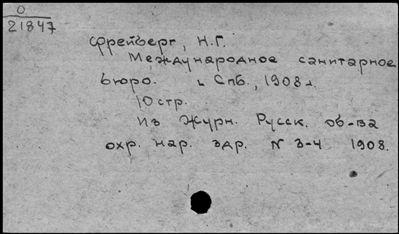 О
21847
Фрейберг, Н.Г.
Международное санитарное
бюро. Спб., 1908 г.
10 стр.
Из Журн. Русск. об-ва
охр. нар. здр. N 3-4 1908.